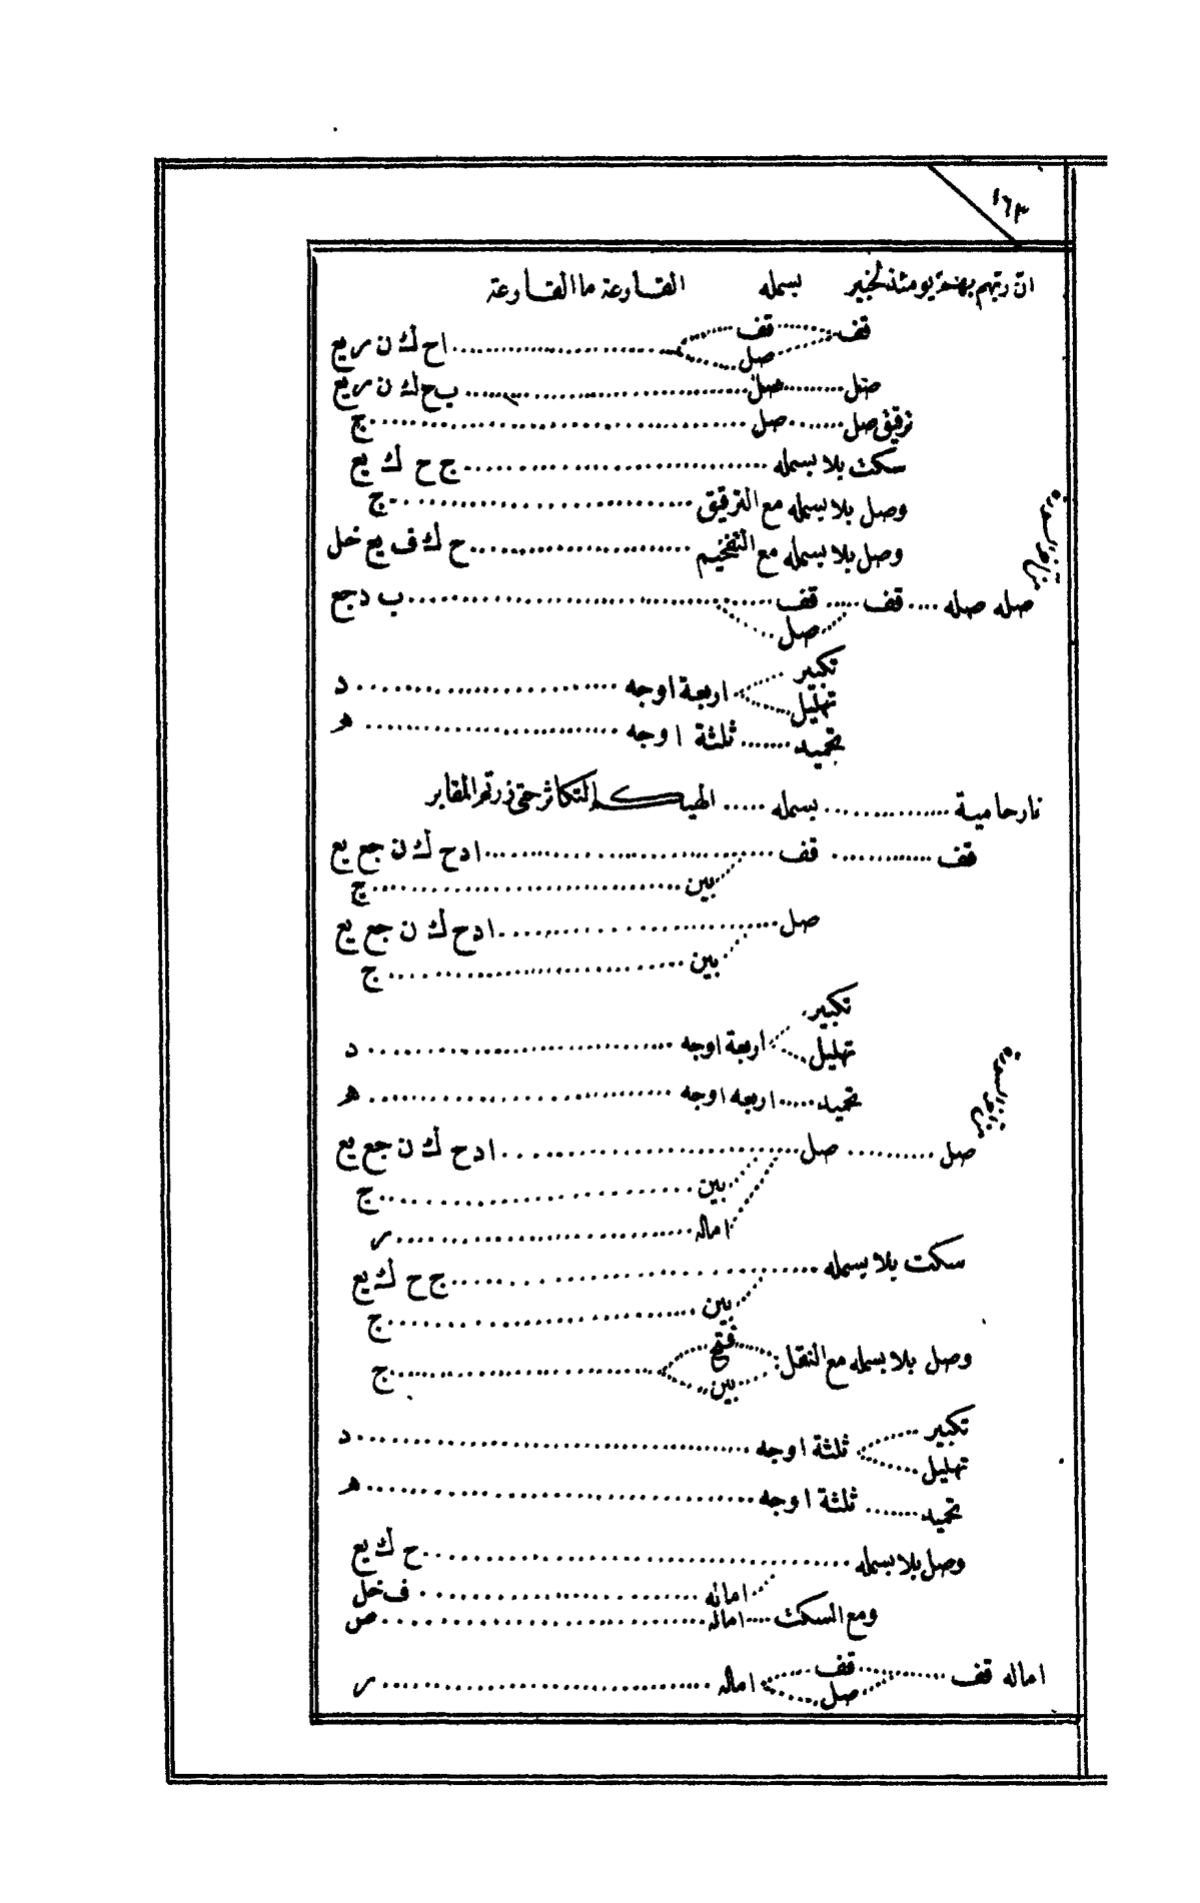 ١٦٣
ان ربهم بهم يومئذ لخبير بسمله القارعة ما القارعة
قف قف ا ح ك ن ر يع
صل
صل صل ب ح ك ن ر يع
ترقيق صل صل ج
سكت بلا بسمله ج ح ك يع
وصل بلا بسمله مع الترقيق ج
وصل بلا بسمله مع التفخيم ح ك ف يع خل
بين السورة
صله صله قف قف ب د جع
صل
تكبير
تهليل اربعة اوجه د
تحميد ثلثة اوجه ه
نار حامية بسمله الهيكم التكاثر حتى زرتم المقابر
قف قف ا د ح ك ن جع يع
بين ج
صل ا د ح ك ن جع يع
بين ج
تكبير
تهليل اربعة اوجه د
تحميد اربعه اوجه ه
بين السورة
صل صل ا د ح ك ن جع يع
بين ج
اماله ر
سكت بلا بسمله ج ح ك يع
بين ج
وصل بلا بسمله مع النقل فتح ج
بين
تكبير
تهليل ثلثة اوجه د
تحميد ثلثة اوجه ه
وصل بلا بسمله ح ك يع
اماله ف خل
ومع السكت اماله ص
اماله قف قف اماله ر
صل